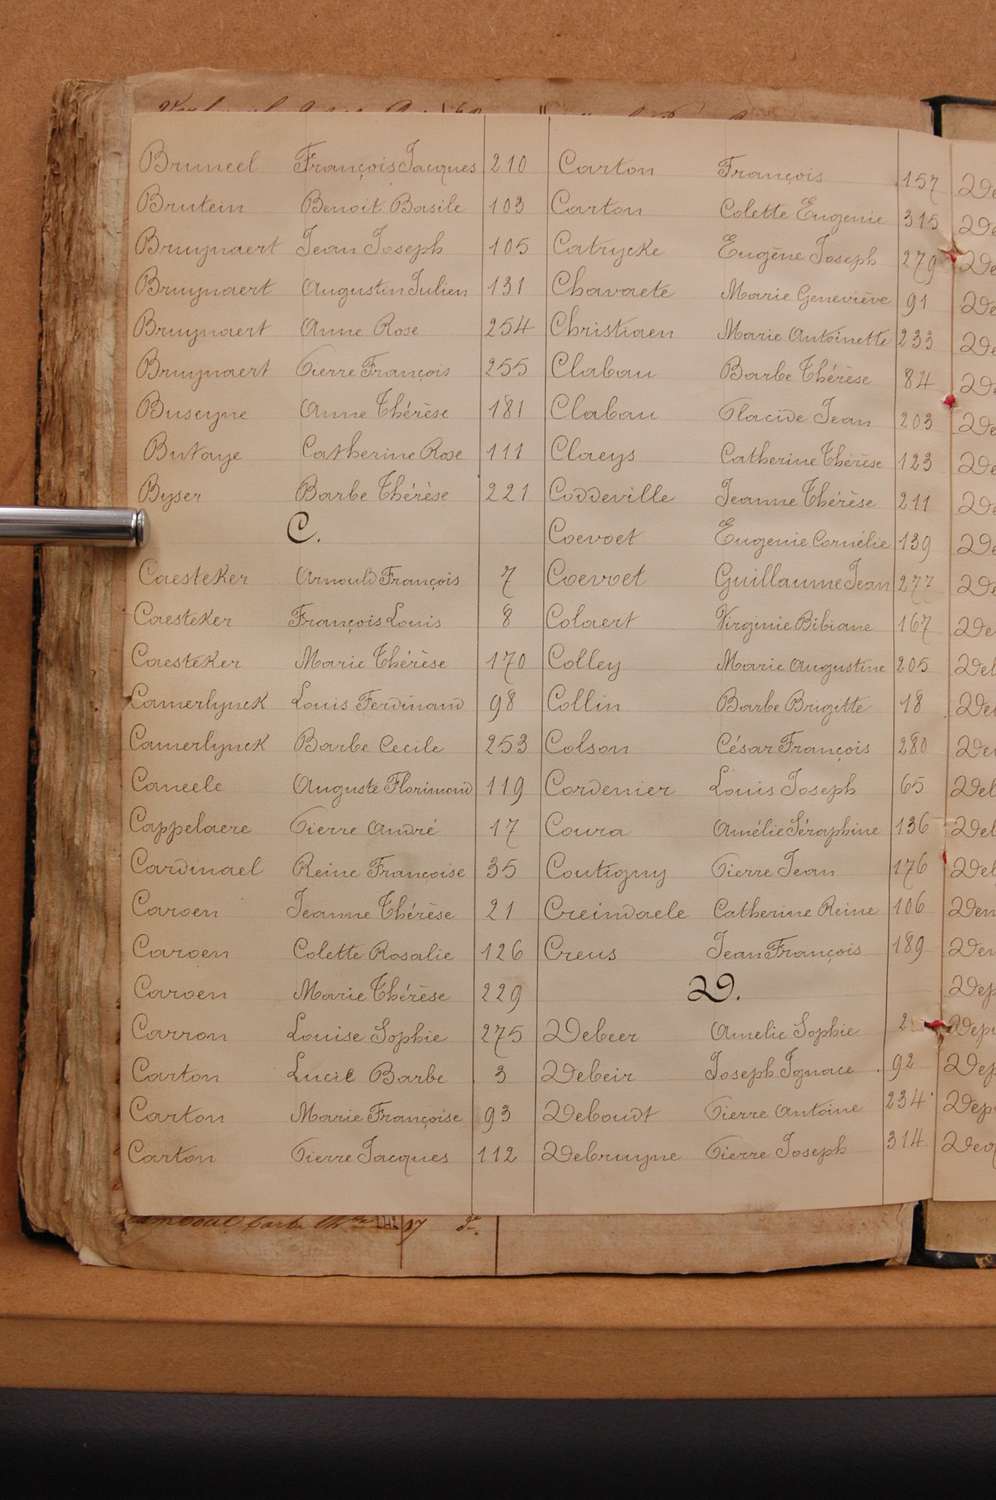 Bruneel François Jacques 210
Brutein Benoit Basile 103
Bruynaert Jean Joseph 105
Bruynaert Augustin Julien 131
Bruynaert Anne Rose 254
Bruynaert Pierre François 255
Buseyne Anne Thérèse 181
Butaye Catherine Rose 111
Byser Barbe Thérèse 221
C.
Caesteker Arnould François 7
Caesteker François Louis 8
Caesteker Marie Thérèse 170
Camerlynck Louis Ferdinand 98
Camerlynck Barbe Cecile 253
Caneele Auguste Florimond 119
Cappelaere Pierre André 17
Cardinael Reine Françoise 35
Caroen Jeanne Thérèse 21
Caroen Colette Rosalie 126
Caroen Marie Thérèse 229
Carron Louise Sophie 275
Carton Lucie Barbe 3
Carton Marie Françoise 93
Carton Pierre Jacques 112
Carton François 157
Carton Colette Eugenie 315
Catrycke Eugène Joseph 279
Chavaete Marie Geneviève 91
Christiaen Marie Antoinette 233
Clabau Barbe Thérèse 84
Clabau Placide Jean 203
Claeys Catherine Thérèse 123
Coddeville Jeanne Thérèse 211
Coevoet Eugenie Cornélie 139
Coevoet Guillaume Jean 277
Colaert Virginie Bibiane 167
Colley Marie Augustine 205
Collin Barbe Brigitte 18
Colson César François 280
Cordenier Louis Joseph 65
Coura Amélie Séraphine 136
Coutigny Pierre Jean 176
Creindaele Catherine Reine 106
Creus Jean François 189
D.
Debeer Amelie Sophie
Debeir Joseph Ignace 92
Deboudt Pierre Antoine 234
Debruyne Pierre Joseph 314